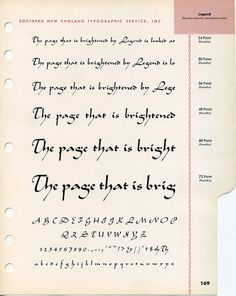 SOUTHERN NEW ENGLAND TYPOGRAPHIC SERVICE, INC.
Legend
24 Point
(Foundry)
The page that is brightened by Legend is looked at
30 Point
(Foundry)
The page that is brightened by Legend is lo
36 Point
(Foundry)
The page that is brightened by Lege
48 Point
(Foundry)
The page that is brightened
60 Point
(Foundry)
The page that is bright
72 Point
(Foundry)
The page that is brig
A B C D E F G H I J K L M N O P
Q R S T U V W X Y Z
1 2 3 4 5 6 7 8 9 0
a b c d e f g h i j k l m n o p q r s t u v w x y z
169